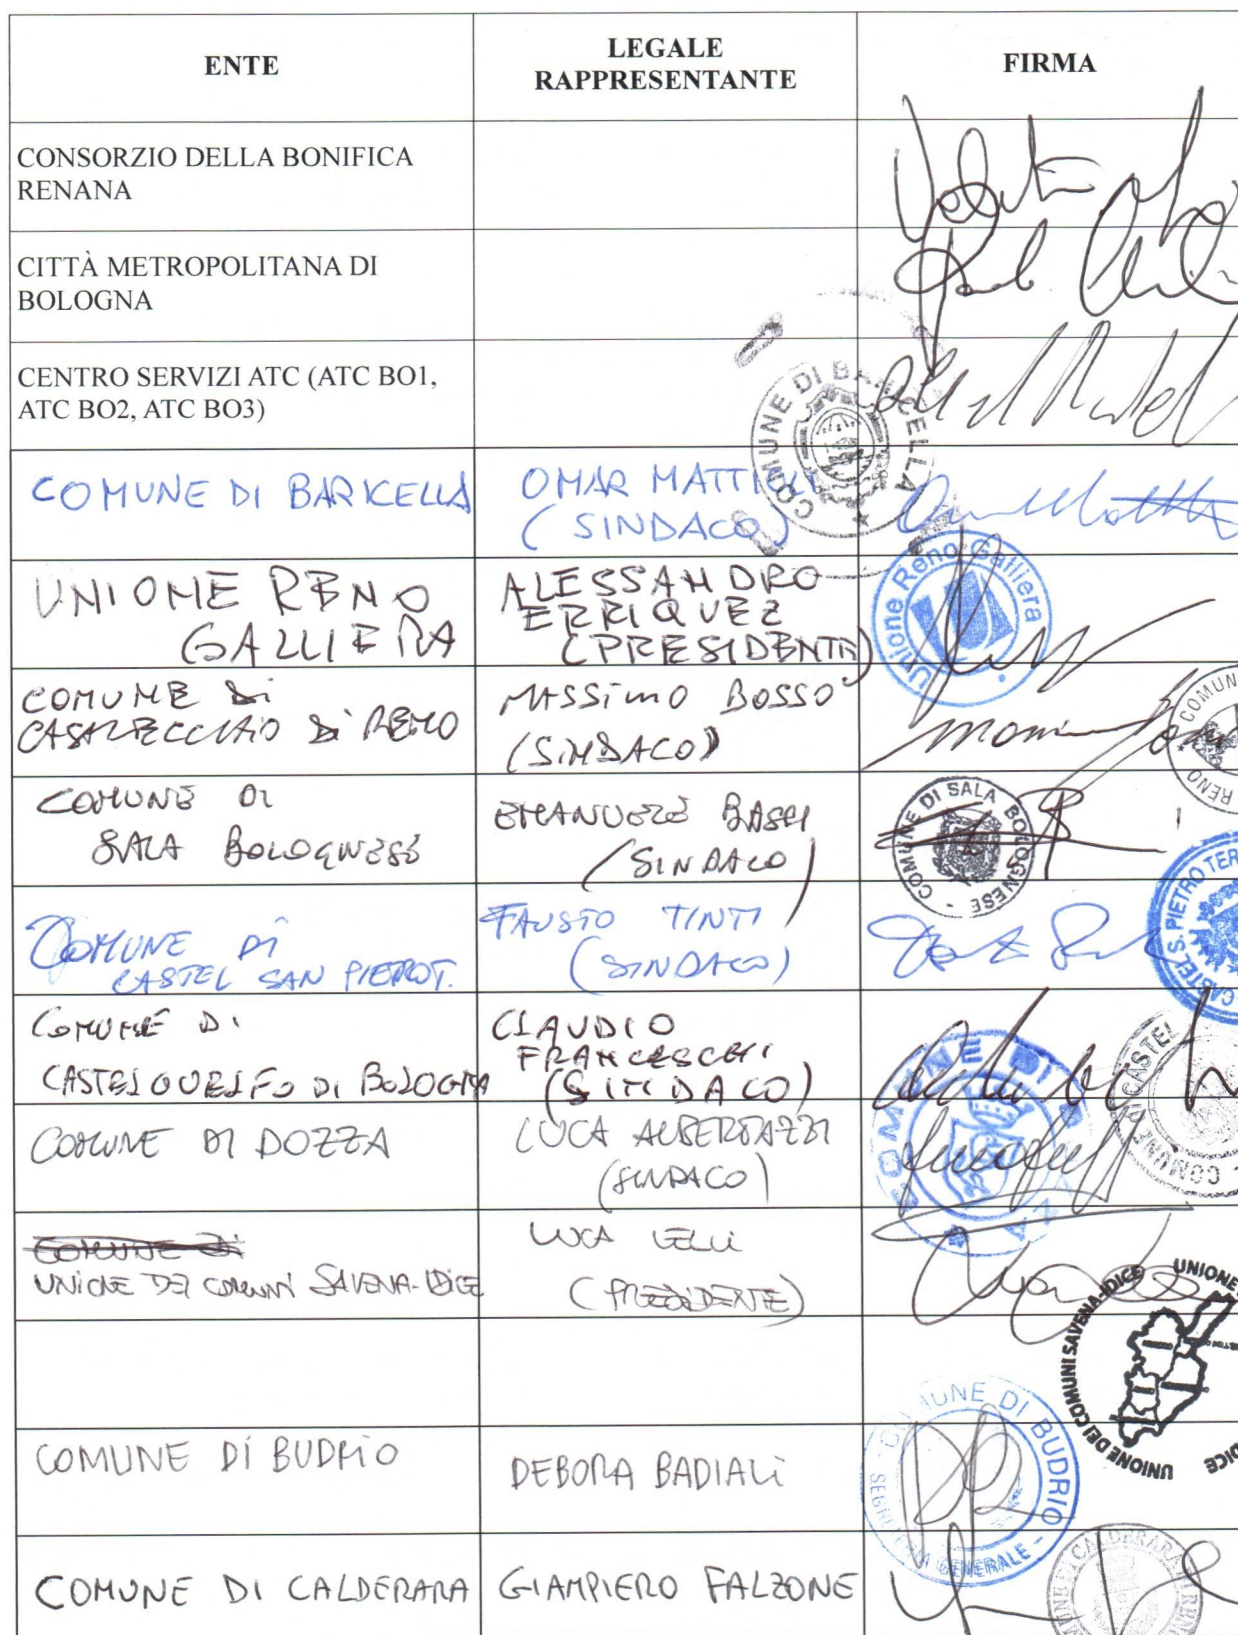 ENTE
LEGALE
RAPPRESENTANTE
FIRMA
CONSORZIO DELLA BONIFICA
RENANA
CITTÀ METROPOLITANA DI
BOLOGNA
CENTRO SERVIZI ATC (ATC BO1,
ATC BO2, ATC BO3)
COMUNE DI BARICELLA
OMAR MATTIOLI
(SINDACO)
COMUNE DI BARICELLA
UNIONE RENO
GALLIERA
ALESSANDRO
ERRIQUEZ
(PRESIDENTE)
Unione Reno Galliera
COMUNE DI
CASALECCHIO DI RENO
MASSIMO BOSSO
(SINDACO)
COMUNE
RENO
COMUNE DI
SALA BOLOGNESE
EMANUELE BASSI
(SINDACO)
COMUNE DI SALA BOLOGNESE
COMUNE DI
CASTEL SAN PIETRO T.
FAUSTO TINTI
(SINDACO)
CASTEL S. PIETRO TER
COMUNE DI
CASTEL GUELFO DI BOLOGNA
CLAUDIO
FRANCESCHI
(SINDACO)
COMUNE DI CASTEL
COMUNE DI DOZZA
LUCA ALBERTAZZI
(SINDACO)
COMUNE DI
COMUNE DI
UNIONE DEI COMUNI SAVENA-IDICE
LUCA LELLI
(PRESIDENTE)
UNIONE DEI COMUNI SAVENA-IDICE
COMUNE DI BUDRIO
DEBORA BADIALI
COMUNE DI BUDRIO
SEGRETERIA GENERALE
COMUNE DI CALDERARA
GIAMPIERO FALZONE
COMUNE DI CALDERARA DI RENO